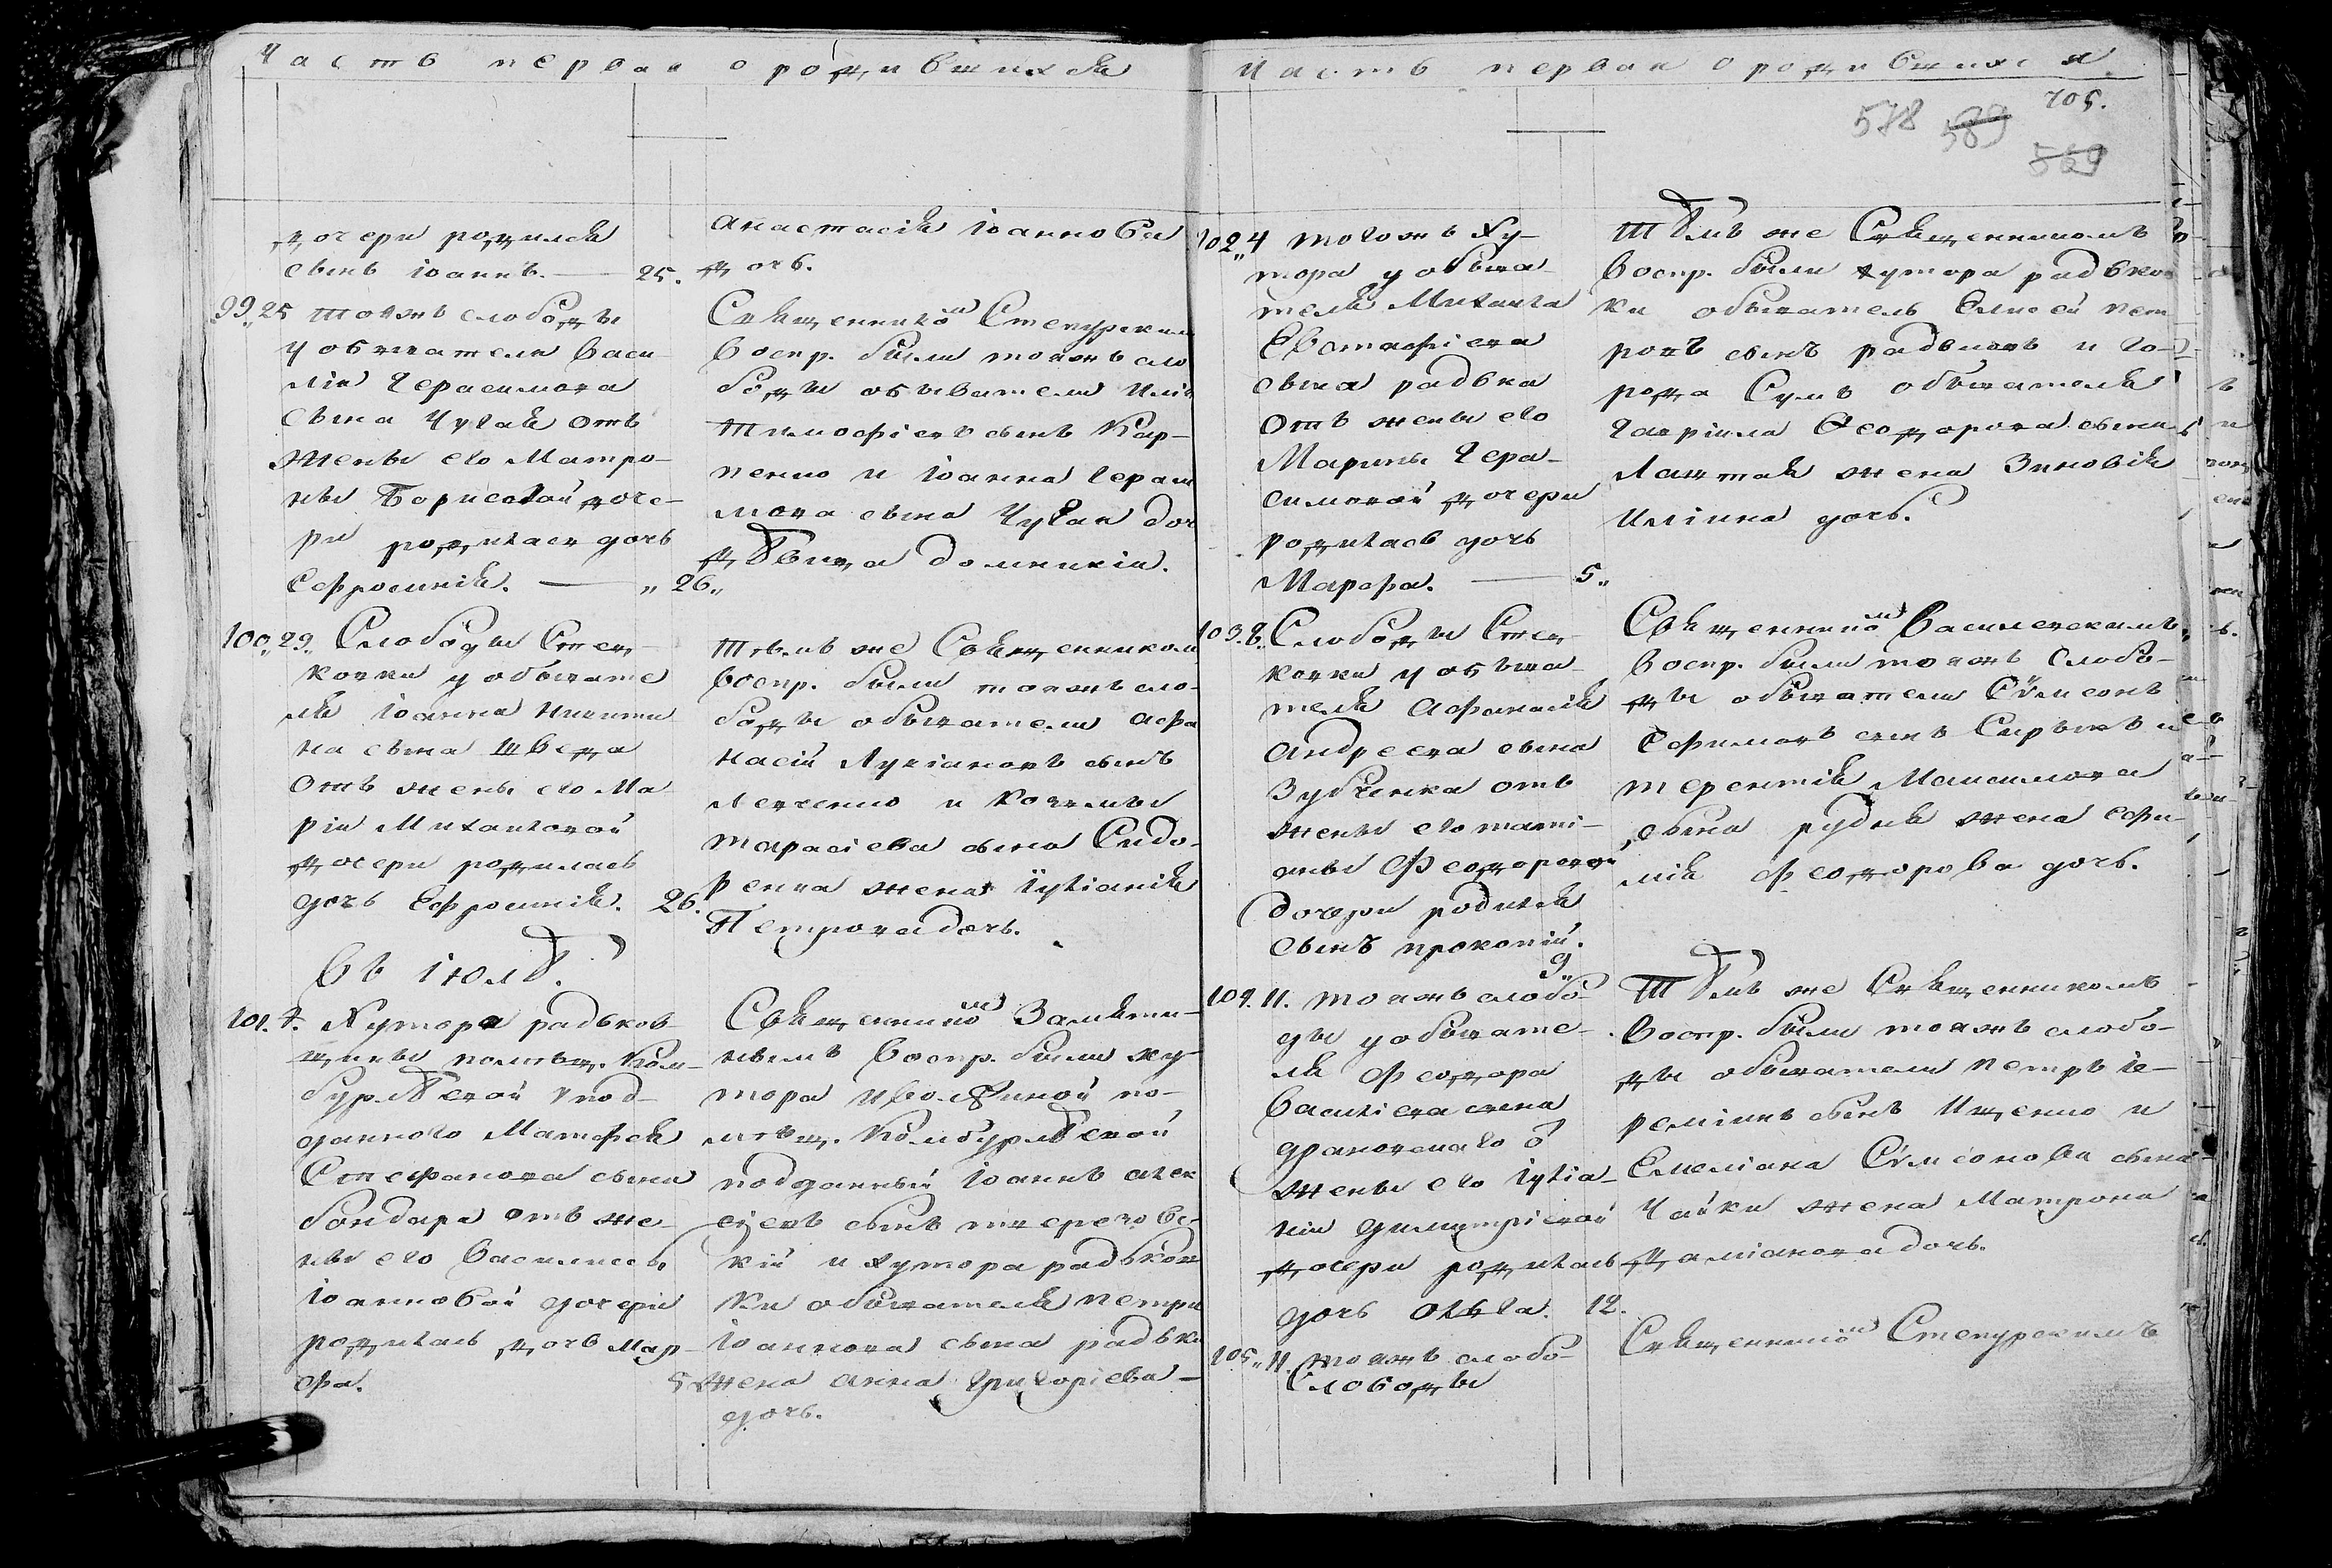 Часть первая о родившихся
дочери родился
сынъ Іоаннъ. — 25.
99„ 25 тояжъ слободы
у обывателя Васи-
лія Герасимова
сына Чугая отъ
жены его Матро-
ны Борисовой доче-
ри родилась дочь
Ефросинія. — „ 26„
100„ 29„ Слободы Стец-
ковки у обывате
ля Іоанна Никити
на сына Шведа
отъ жены его Ма
ріи Михаиловой
дочери родилась
дочь Ефросинія. 26.
Въ Іюлѣ.
101. 4. Хутора радьков-
щины помѣщ. Ком-
бурлѣевой у под-
данного Матфея
Стефанова сына
бондаря отъ же-
ны его Василисы
Іоанновой дочери
родилась дочь Мар-
фа. 5
Анастасія Іоаннова
дочь.
Священникомъ Степурскимъ
воспр. были тояжъ сло
боды обыватели Илія
Тимофіевъ сынъ Кар-
пенко и Іоанна Гераси
мова сына Чугая доч
дѣвица Домникія.
Тѣмъ же Священникомъ
воспр. были тояжъ сло-
боды обыватели Афа
насій Лукіановъ сынъ
Левченко и Космы
Тарасіева сына Сидо-
ренка жена Іуліанія
Петрова дочь.
Священникомъ Замѣти-
нымъ воспр. были ху-
тора Иволжиной по-
мѣщ. Комбурлѣевой
подданный Іоаннъ Алек
сіевъ сынъ
кій и хутора радьков
ки обывателя Петра
Іоаннова сына радька
жена Анна Григоріева
дочь.
Часть первая о родившихся
705.
578 589
569
102„ 4 тогожъ Ху-
тора у обыва-
теля Михаила
Евстафіева
сына радька
отъ жены его
Марины Гера-
симовой дочери
родилась дочь
Марфа. — 5„
103. 8„ Слободы Стец-
ковки у обыва-
теля Афанасія
Андреева сына
Зубченка отъ
жены его Татi-
аны Феодоровой
дочери родился
сынъ Прокопій.
9„
104. 11. тояжъ слобо-
ды у обывате-
ля Феодора
Василіева сына
драновскаго ѿ
жены его Іуліа-
ніи Димитріевой
дочери родилась
дочь Ольга. 12.
105„ 11. тояжъ слобо-
Слободы
Тѣмъ же Священникомъ
воспр. были хутора радьков
ки обыватель Елисей Пет
ровъ сынъ радьковъ и го-
рода Сумъ обывателя
Гавріила Ѳеодорова сына
Лантая жена Зиновія
Илліина дочь.
Священникомъ Василевскимъ
воспр. были тояжъ Слобо-
ды обыватели Сѵмеонъ
Ефимовъ сынъ Сирыкъ и
Терентія Максимова
сына рудня жена Ефи-
мія Феодорова дочь.
Тѣмъ же Священникомъ
воспр. были тояжъ слобо-
ды обыватели Петръ Іе-
реміинъ сынъ Ищенко и
Емеліана Сѵмеонова сына
Чайки жена Матрона
Даміанова дочь.
Священникомъ Степурскимъ